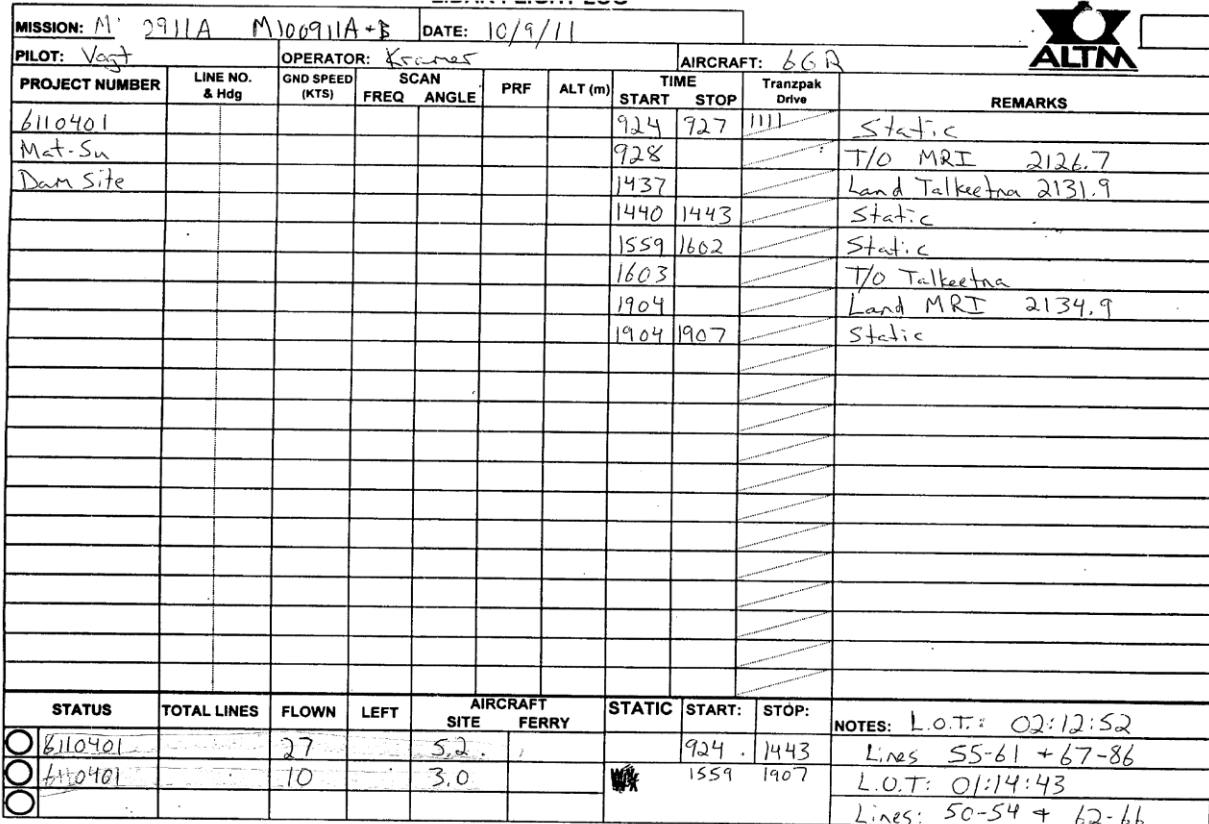 LIDAR FLIGHT LOG
MISSION: M 2911A M100911A+B DATE: 10/9/11
PILOT: Vogt OPERATOR: Kramer AIRCRAFT: 66R
ALTM
PROJECT NUMBER LINE NO. & Hdg GND SPEED (KTS) SCAN FREQ ANGLE PRF ALT (m) TIME START STOP Tranzpak Drive REMARKS
6110401 924 927 1111 Static
Mat-Su 928 T/O MRI 2126.7
Dam Site 1437 Land Talkeetna 2131.9
1440 1443 Static
1559 1602 Static
1603 T/O Talkeetna
1904 Land MRI 2134.9
1904 1907 Static
STATUS TOTAL LINES FLOWN LEFT AIRCRAFT SITE FERRY STATIC START: STOP: NOTES: L.O.T.: 02:12:52
6110401 27 5.2 924 1443 Lines 55-61 + 67-86
6110401 10 3.0 1559 1907 L.O.T: 01:14:43
Lines: 50-54 + 62-66